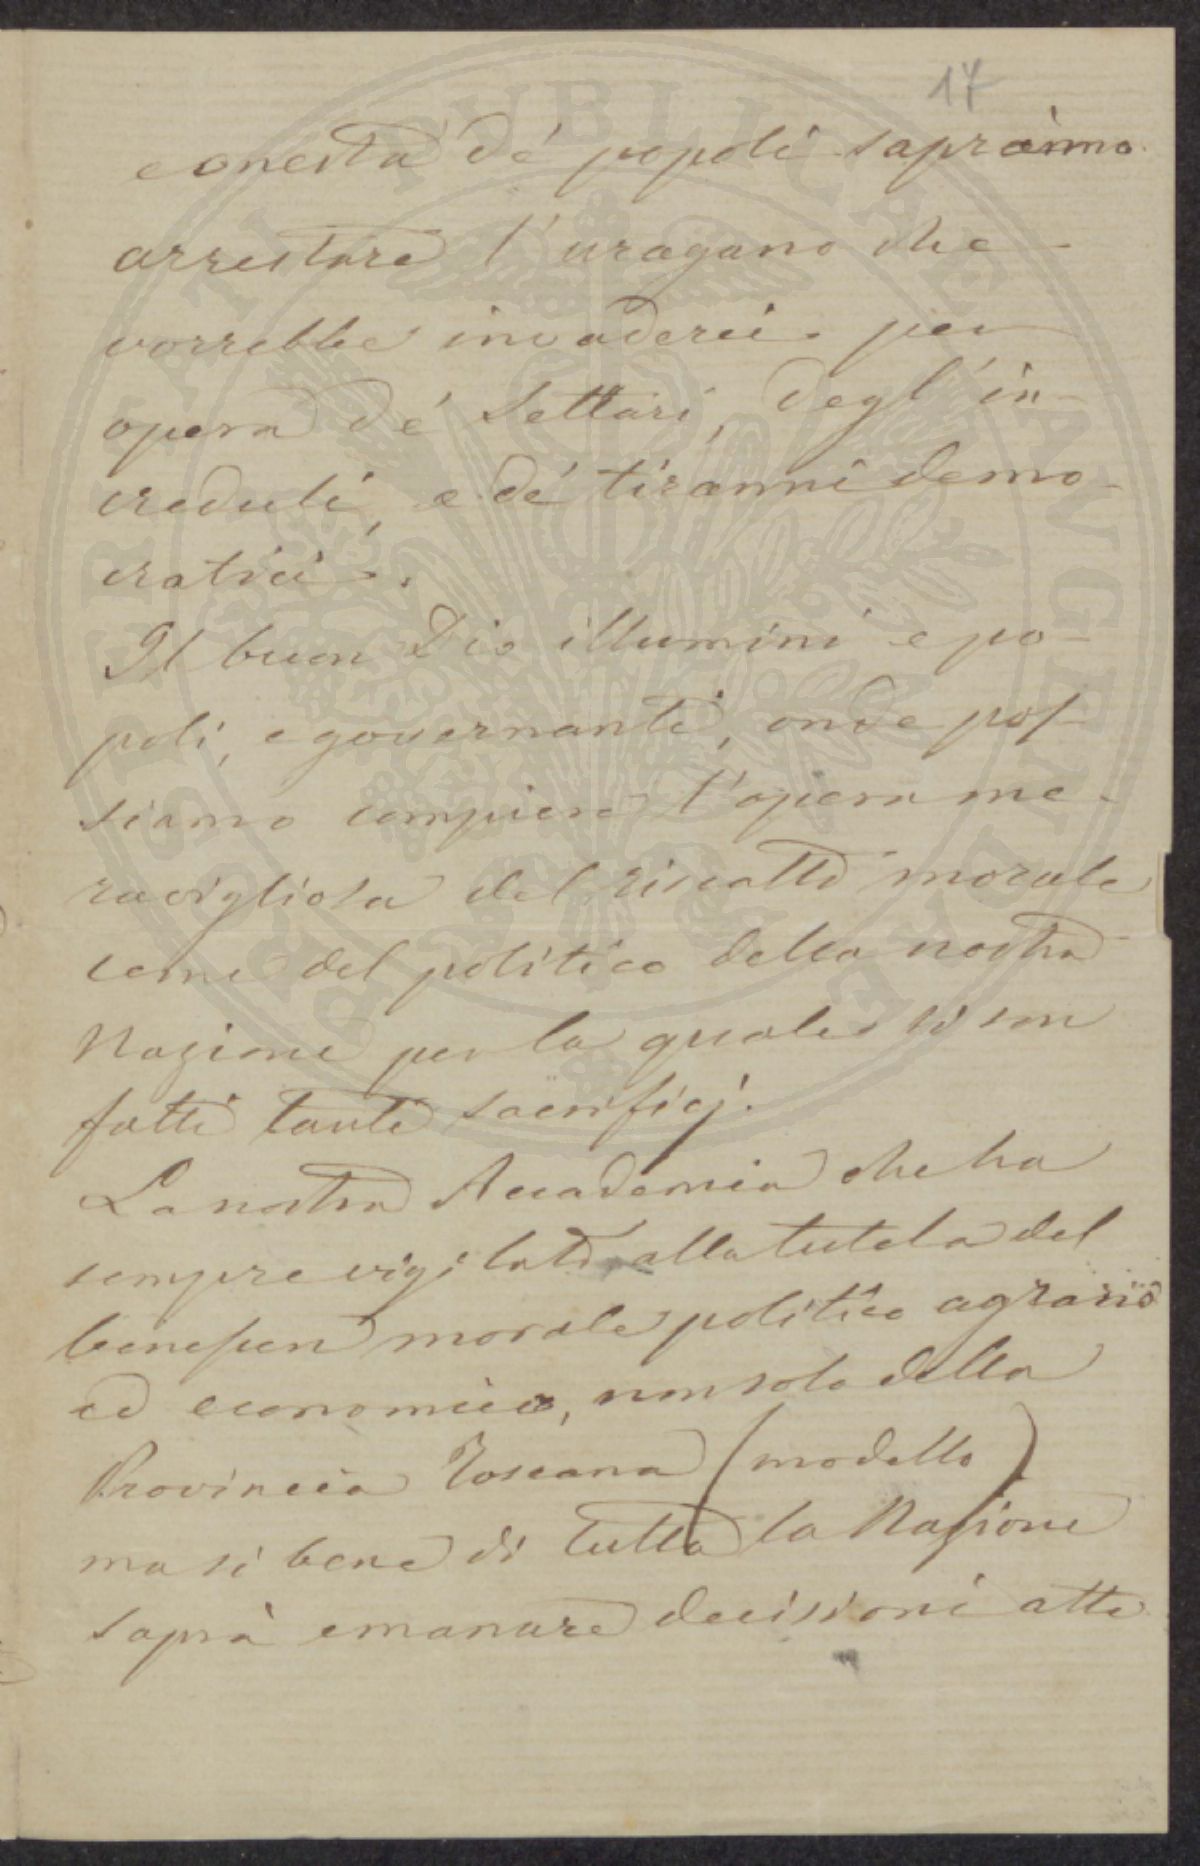 17
e onestà dé popoli sapranno
arrestare l'uragano che
vorrebbe invaderci per
opera dé Settari, degl'in-
creduli, e dé tiranni demo-
cratici.
Il buon Dio illumini e po-
poli, e governanti, onde pos-
siamo compiere l'opera me-
ravigliosa del riscatto morale
come del politico della nostra
Nazione per la quale si son
fatti tanti sacrificj.
La nostra Accademia che ha
sempre vigilato alla tutela del
benessere morale politico agrario
ed economico, non solo della
Provincia Toscana (modello)
ma si bene di tutta la Nazione
saprà emanare decisioni atte
PROSPERITATI PUBLICAE AUGENDAE